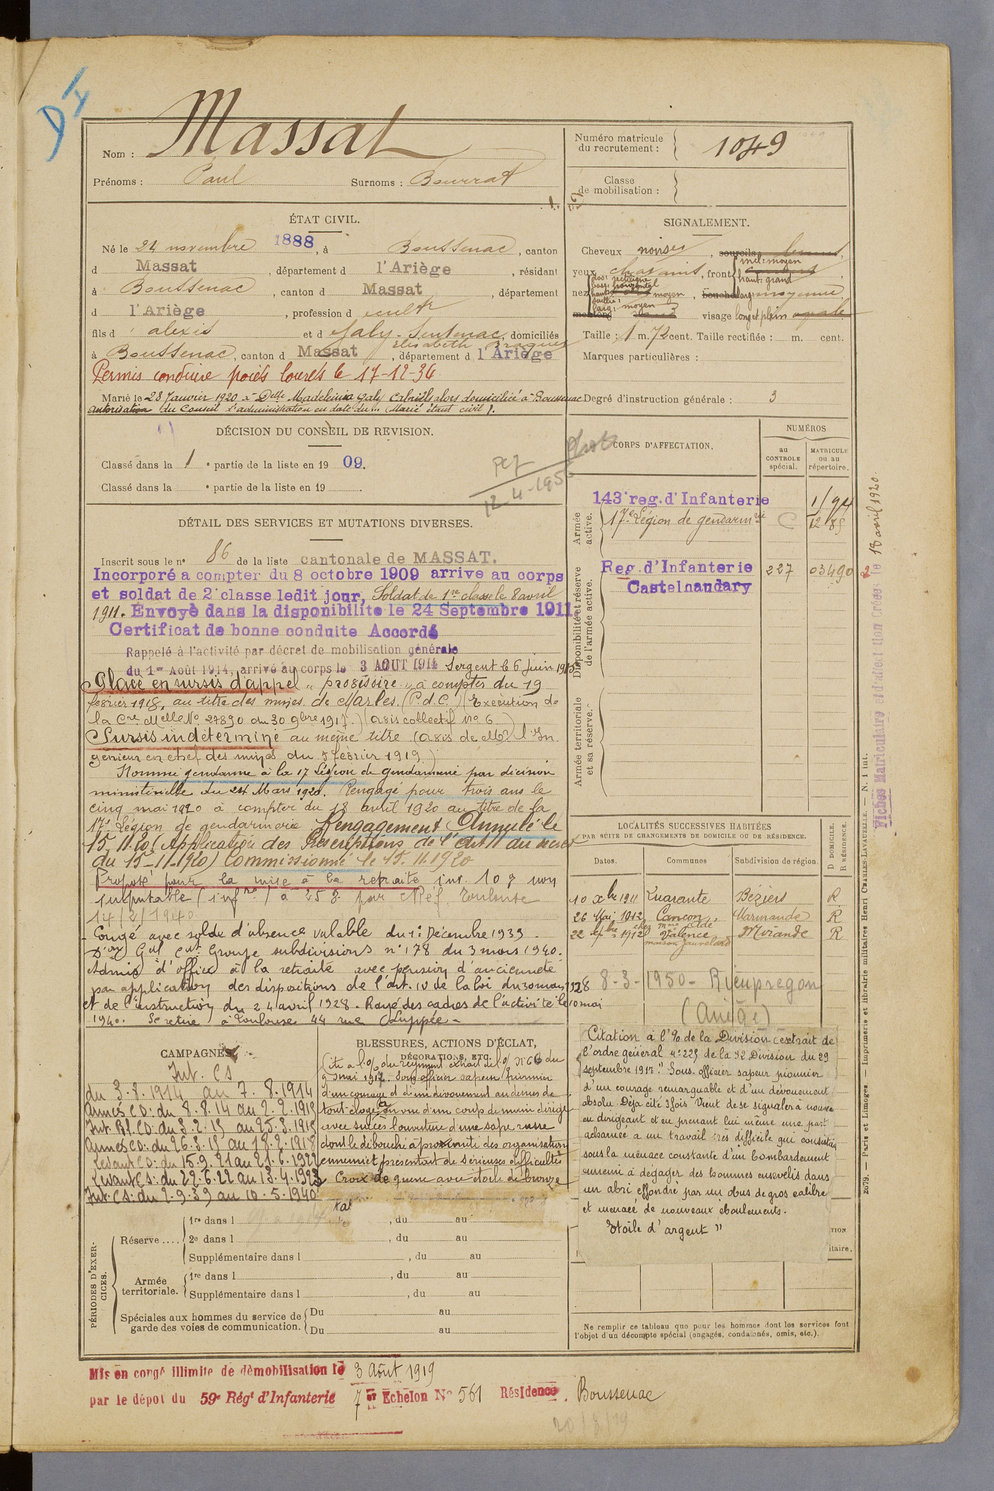 Massat
Nom :
Prénoms : Paul Surnoms : Bourrat
Numéro matricule
du recrutement : 1049
Classe
de mobilisation :
ÉTAT CIVIL.
Né le 24 novembre 1888, à Boussenac, canton
d Massat, département d l'Ariège, résidant
à Boussenac, canton d Massat, département
d l'Ariège, profession d cult
fils d alexis et d Galy-Sentenac, domiciliés
à Boussenac, canton d Massat, département d l'Ariège
Permis conduire poids lourds le 17-12-36
Marié le 28 Janvier 1920 à Delle Madeleine Galy alors domiciliée à Boussenac
autorisation du Conseil d'administration en date du
SIGNALEMENT.
Cheveux noirs
yeux, front
nez moyen
visage long et plein
Taille : 1 m. 72 cent. Taille rectifiée : m. cent.
Marques particulières :
Degré d'instruction générale : 3
DÉCISION DU CONSEIL DE REVISION.
Classé dans la 1 e partie de la liste en 1909.
Classé dans la e partie de la liste en 19
12-4-195
CORPS D'AFFECTATION.
NUMÉROS
AU CONTROLE spécial.
MATRICULE OU AU répertoire.
Armée active.
143e reg. d'Infanterie
17e Légion de gendarmerie
Disponibilité et réserve de l'armée active.
Reg. d'Infanterie
Castelnaudary
227 03490
Armée territoriale et sa réserve.
DÉTAIL DES SERVICES ET MUTATIONS DIVERSES.
Inscrit sous le n° 86 de la liste cantonale de MASSAT.
Incorporé a compter du 8 octobre 1909 arrive au corps
et soldat de 2e classe ledit jour, Soldat de 1re classe le 8 avril
1911. Envoyé dans la disponibilité le 24 Septembre 1911
Certificat de bonne conduite Accordé
Rappelé à l'activité par décret de mobilisation générale
du 1er Août 1914, arrivé au corps le 3 AOUT 1914 Sergent le 6 juin 1915
Placé en sursis d'appel "provisoire" à compter du 19
février 1918, au titre des mines de charles (P.d.C.) (Exécution de
la Cre Mlle No 27890 du 30 9bre 1917.) (avis collectif no 6)
Sursis indéterminé au même titre (avis de Mr l'In
génieur en chef des mines du 5 février 1919.)
Nommé gendarme à la 17 Légion de gendarmerie par décision
ministérielle du 24 Mars 1920. Rengagé pour trois ans le
cinq mai 1920 à compter du 18 avril 1920 au titre de la
17e Légion de gendarmerie Rengagement Annulé le
15.11.20 (Application des Prescriptions de l'art 11 du décret
du 15-11-1920) Commissionné le 15.11.1920
Proposé pour la mise à la retraite int. 10 9 non
imputable (inf re) à 25 % par C Réf. Toulouse
14/2/1940
Congé avec solde d'absence valable du 1er Décembre 1939.
Don Gal Ct Groupe subdivisions n° 178 du 3 mars 1940.
Admis d'office à la retraite avec pension d'ancienneté
par application des dispositions de l'art. IV de la loi du 30 mars 1928
et de l'instruction du 24 avril 1928 - Rayé des cadres de l'activité le 10 mai
1940. Se retire à Toulouse 44 rue
LOCALITÉS SUCCESSIVES HABITÉES
PAR SUITE DE CHANGEMENTS DE DOMICILE OU DE RÉSIDENCE.
Dates. Communes Subdivision de région.
D DOMICILE. R RÉSIDENCE.
10 Xbre 1911 Quarante Béziers R
26 Mai 1912 Cancon, Marmande R
22 7bre 1912 Valence Mirande R
8-3-1950 - Rieuprégon
(Ariège)
CAMPAGNES
Int. CS
du 3.8.1914 au 7.8.1914
Armées CD: du 8.8.14 au 2.2.1919
Int. Rl. CD. du 3.2.19 au 25.3.1919
Armées CD. du 26.3.19 au 18.2.1919
Levant CD: du 15.9.21 au 21.6.1922
Levant CS: du 22-6-22 au 13.4.1923
Int. CS: du 2-9-39 au 10.5.1940
BLESSURES, ACTIONS D'ÉCLAT,
DÉCORATIONS, ETC.
Cité à l'o/ du régiment extrait de l'o/ no 66 du
9 mai 1917. Sous officier sapeur pionnier
d'un courage et d'un dévouement au dessus de
tout éloge; en vue d'un coup de main dirigé
avec succès l'ouverture d'une sape russe
dont le débouché à proximité des organisations
ennemies présentait de sérieuses difficultés
Croix de guerre avec étoile de bronze
Citation à l'O. de la Division (extrait de
l'ordre général no 225 de la 32 Division du 29
septembre 1917: Sous officier sapeur pionnier
d'un courage remarquable et d'un dévouement
absolu. Déjà cité 3 fois Vient de se signaler à nouveau
en dirigeant et en prenant lui même une part
à un travail très difficile qui consistait
sous la menace constante d'un bombardement
ennemi à dégager des hommes ensevelis dans
un abri effondré par un obus de gros calibre
et menacé de nouveaux éboulements.
"Etoile d'argent"
PÉRIODES D'EXERCICES.
Réserve....
1re dans l , du au
2e dans l , du au
Supplémentaire dans l , du au
Armée territoriale.
1re dans l , du au
Supplémentaire dans l , du au
Spéciales aux hommes du service de
garde des voies de communication.
Du au
Du au
Ne remplir ce tableau que pour les hommes dont les services font
l'objet d'un décompte spécial (engagés, condamnés, omis, etc.).
Mis en congé illimité de démobilisation le 3 Août 1919
par le dépôt du 59e Régt d'Infanterie 7e Echelon No 561 Résidence, Boussenac
20/8/19
Fiches Matriculaire et d'affectation Créées le 13 avril 1920.
2079. — Paris et Limoges. — Imprimerie et librairie militaires Henri CHARLES-LAVAUZELLE. — N. 1 int.